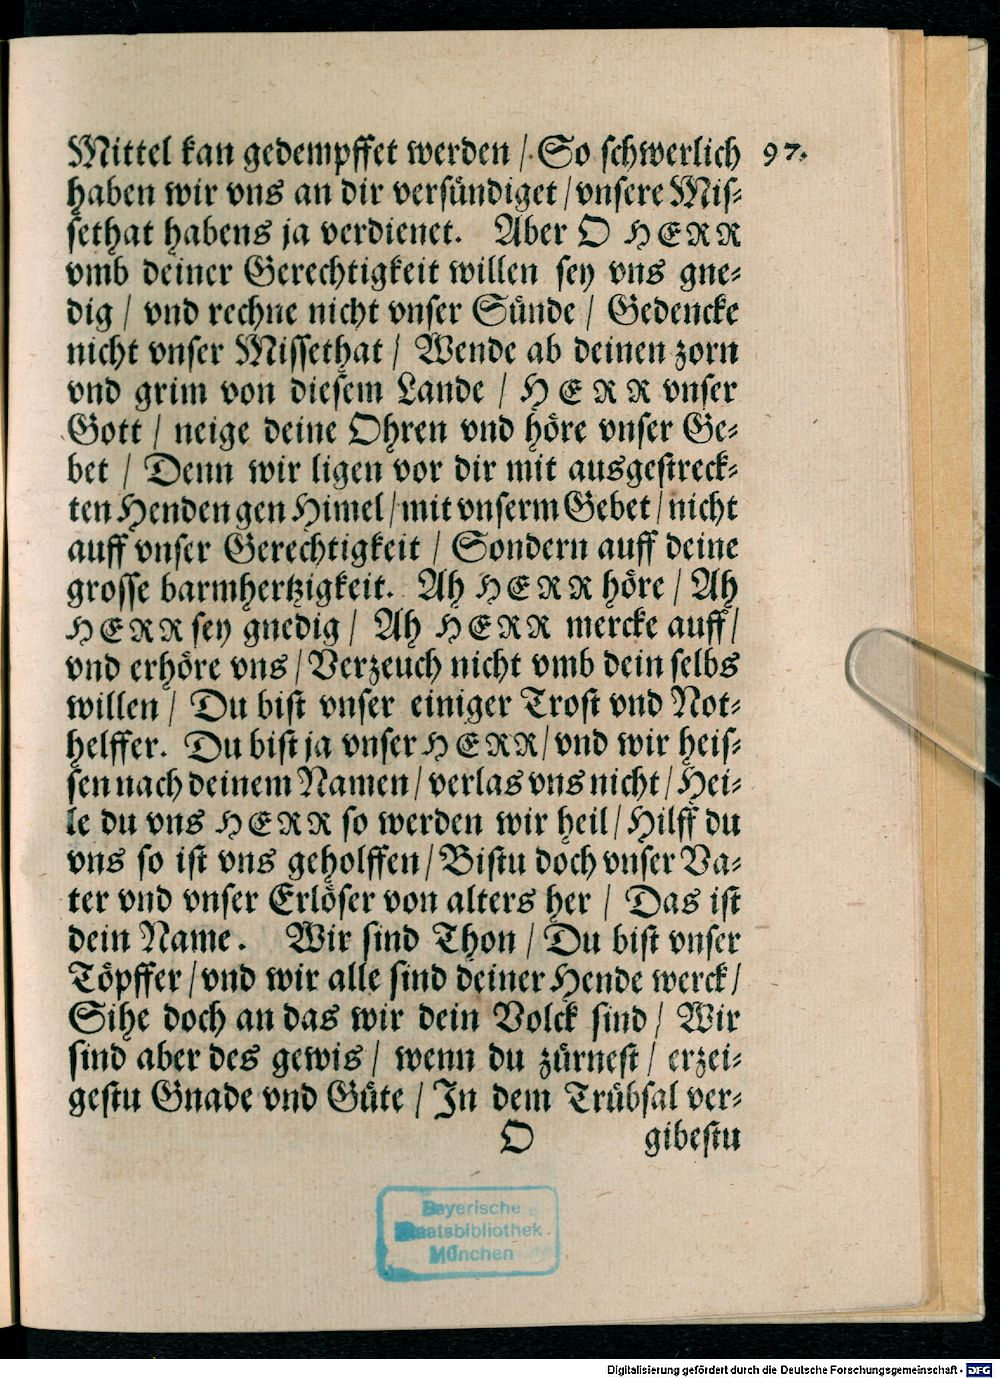 Mittel kan gedempffet werden / So schwerlich 97.
haben wir vns an dir versündiget / vnsere Mis-
sethat habens ja verdienet. Aber O HERR
vmb deiner Gerechtigkeit willen sey vns gne-
dig / vnd rechne nicht vnser Sünde / Gedencke
nicht vnser Missethat / Wende ab deinen zorn
vnd grim von diesem Lande / HERR vnser
Gott / neige deine Ohren vnd höre vnser Ge-
bet / Denn wir ligen vor dir mit ausgestreck-
ten Henden gen Himel / mit vnserm Gebet / nicht
auff vnser Gerechtigkeit / Sondern auff deine
grosse barmhertzigkeit. Ah HERR höre / Ah
HERR sey gnedig / Ah HERR mercke auff /
vnd erhöre vns / Verzeuch nicht vmb dein selbs
willen / Du bist vnser einiger Trost vnd Not-
helffer. Du bist ja vnser HERR / vnd wir heis-
sen nach deinem Namen / verlas vns nicht / Hei-
le du vns HERR so werden wir heil / Hilff du
vns so ist vns geholffen / Bistu doch vnser Va-
ter vnd vnser Erlöser von alters her / Das ist
dein Name. Wir sind Thon / Du bist vnser
Töpffer / vnd wir alle sind deiner Hende werck /
Sihe doch an das wir dein Volck sind / Wir
sind aber des gewis / wenn du zürnest / erzei-
gestu Gnade vnd Güte / In dem Trübsal ver-
O gibestu
Bayerische
Staatsbibliothek
München
Digitalisierung gefördert durch die Deutsche Forschungsgemeinschaft - DFG